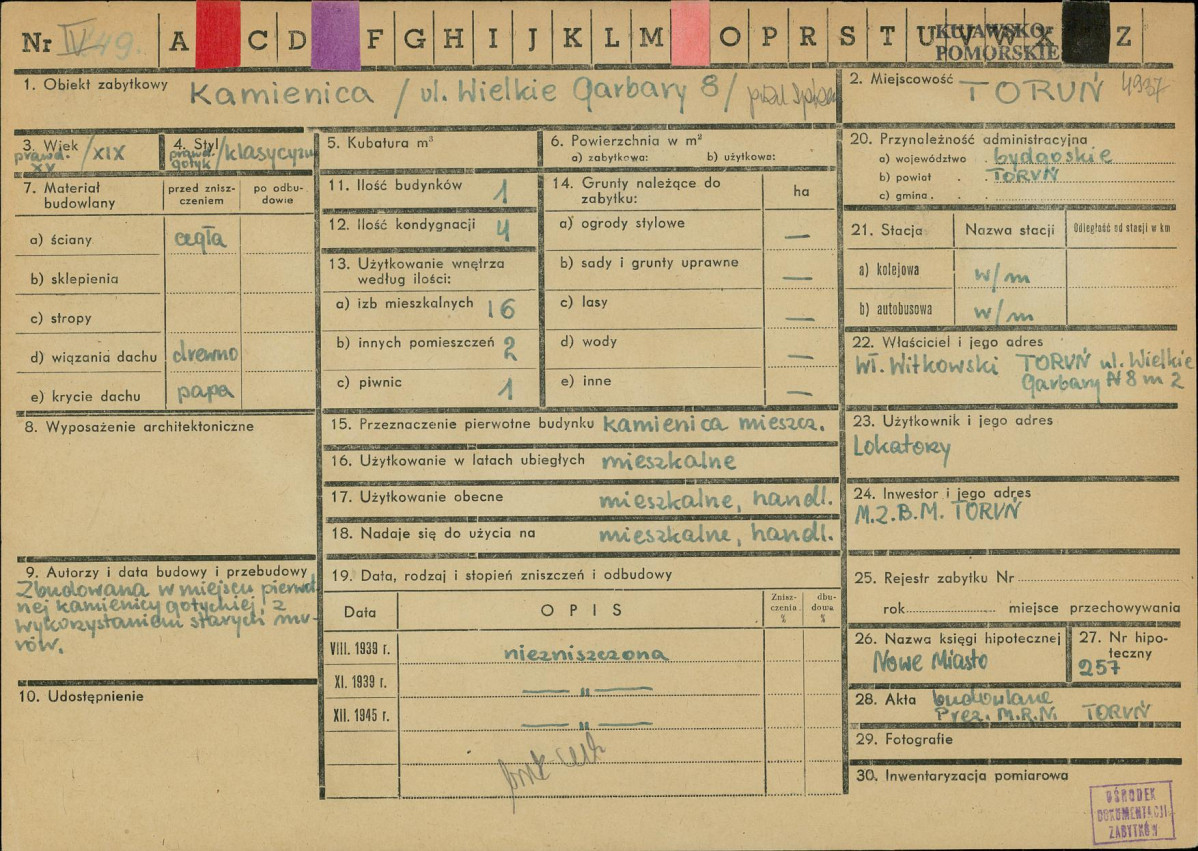 Nr IV 49.
A C D F G H I J K L M O P R S T U V W X Z
KUJAWSKO-
POMORSKIE
1. Obiekt zabytkowy Kamienica / ul. Wielkie Garbary 8/
2. Miejscowość TORUŃ 4937
3. Wiek
prawd. XV /XIX
4. Styl
prawd. gotyk /klasycyzm
5. Kubatura m³
6. Powierzchnia w m²
a) zabytkowa: b) użytkowe:
7. Materiał budowlany
przed zniszczeniem
po odbudowie
a) ściany cegła
b) sklepienia
c) stropy
d) wiązania dachu drewno
e) krycie dachu papa
8. Wyposażenie architektoniczne
9. Autorzy i data budowy i przebudowy
Zbudowana w miejscu pierwot
nej kamienicy gotyckiej, z
wykorzystaniem starych mu-
rów.
10. Udostępnienie
11. Ilość budynków 1
12. Ilość kondygnacji 4
13. Użytkowanie wnętrza
według ilości:
a) izb mieszkalnych 16
b) innych pomieszczeń 2
c) piwnic 1
14. Grunty należące do
zabytku:
ha
a) ogrody stylowe —
b) sady i grunty uprawne —
c) lasy —
d) wody —
e) inne —
15. Przeznaczenie pierwotne budynku kamienica mieszcz.
16. Użytkowanie w latach ubiegłych mieszkalne
17. Użytkowanie obecne mieszkalne, handl.
18. Nadaje się do użycia na mieszkalne, handl.
19. Data, rodzaj i stopień zniszczeń i odbudowy
Data
OPIS
Znisz-
czenia
%
dbu-
dowa
%
VIII. 1939 r. niezniszczona
XI. 1939 r. — " —
XII. 1945 r. — " —
20. Przynależność administracyjna
a) województwo . bydgoskie
b) powiat . . TORUŃ
c) gmina . .
21. Stacja
Nazwa stacji
Odległość od stacji w km
a) kolejowa w/m
b) autobusowa w/m
22. Właściciel i jego adres
Wł. Witkowski TORUŃ ul. Wielkie
Garbary N 8 m 2
23. Użytkownik i jego adres
Lokatorzy
24. Inwestor i jego adres
M.Z.B.M. TORUŃ
25. Rejestr zabytku Nr
rok miejsce przechowywania
26. Nazwa księgi hipotecznej
Nowe Miasto
27. Nr hipo-
teczny
257
28. Akta budowlane
Prez. M.R.N. TORUŃ
29. Fotografie
30. Inwentaryzacja pomiarowa
OŚRODEK
DOKUMENTACJI
ZABYTKÓW